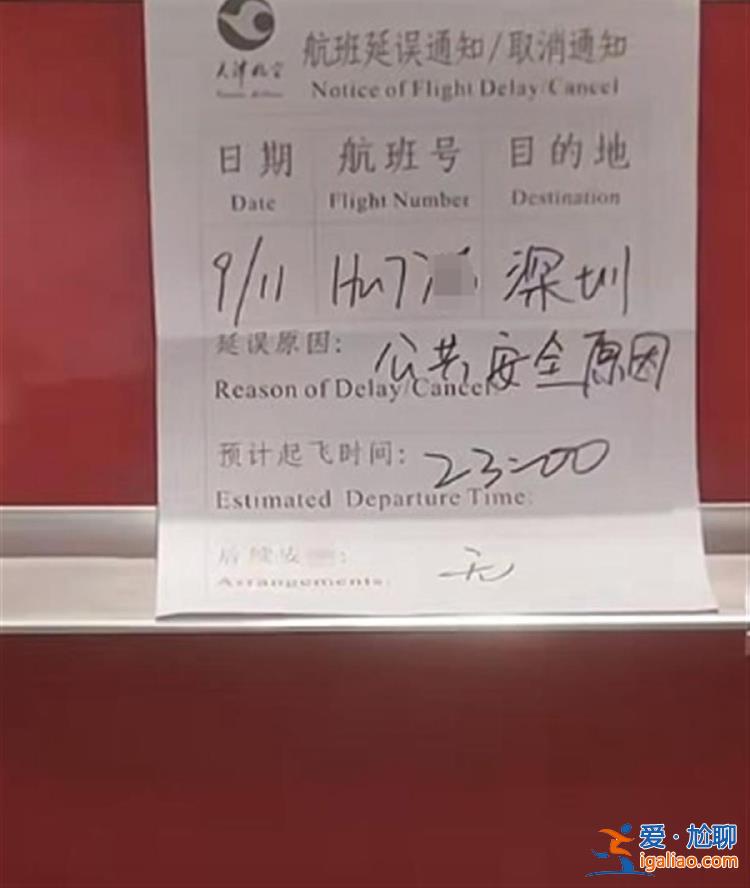 天津航空
航班延误通知/取消通知
Notice of Flight Delay/Cancel
日期 航班号 目的地
Date Flight Number Destination
9/11 Hu7 深圳
延误原因: 公共安全原因
Reason of Delay/Cancel
预计起飞时间: 23:00
Estimated Departure Time:
后续安
Arrangements: 无
爱·尬聊
igaliao.com